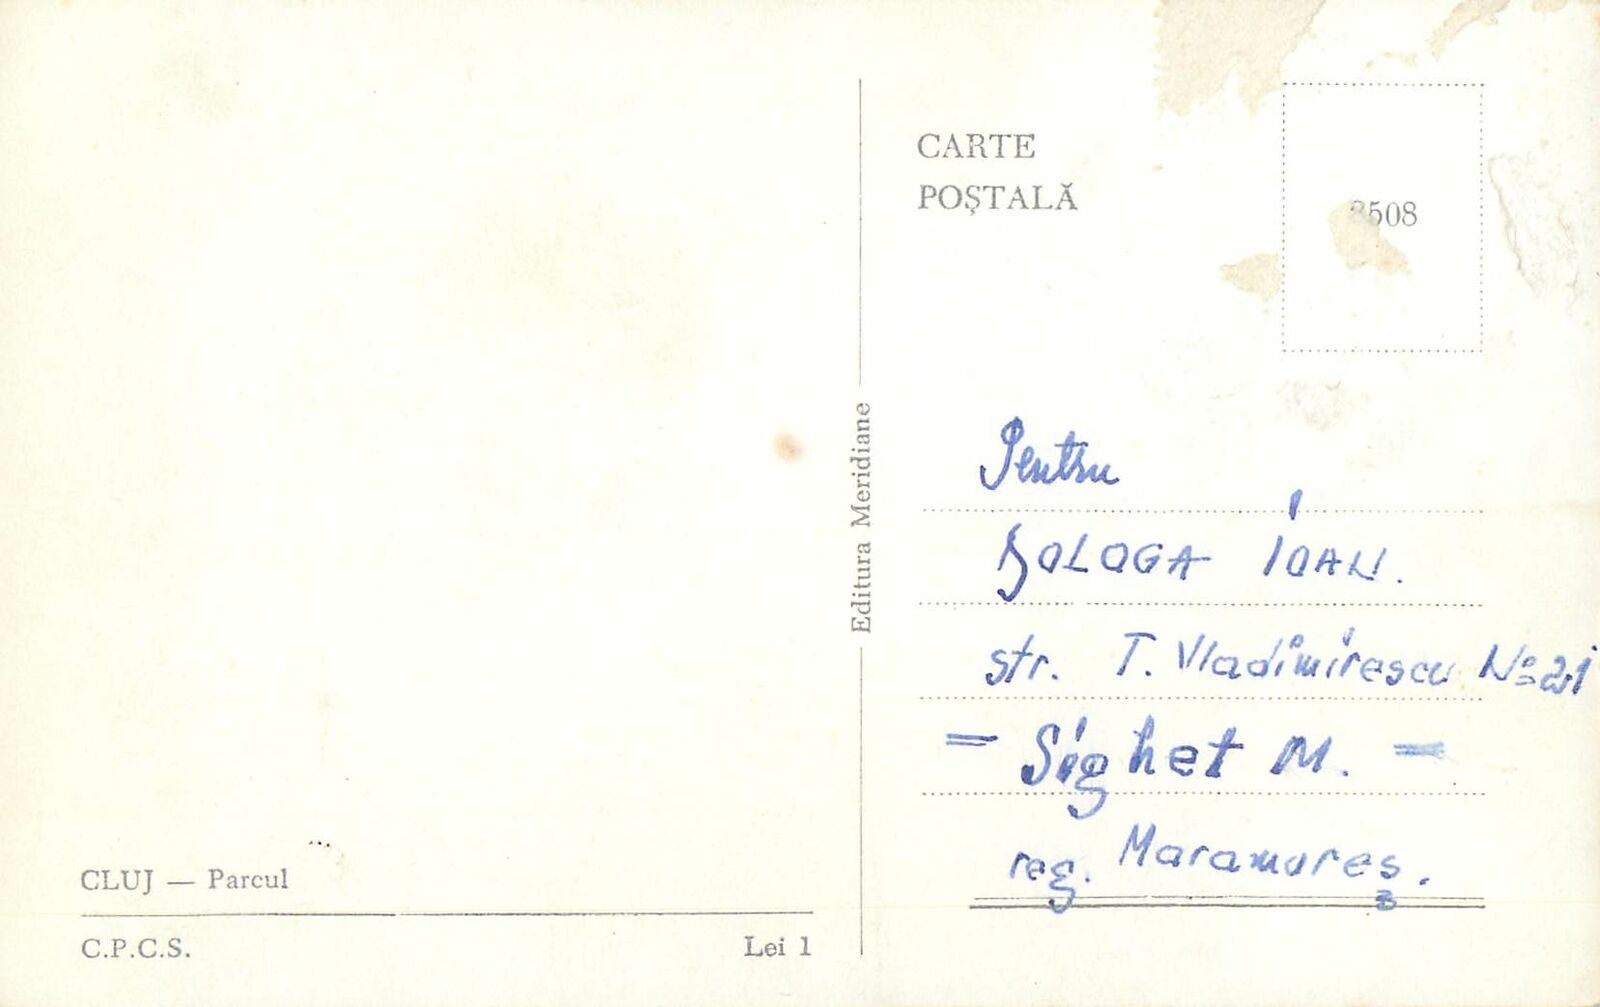 CARTE
POȘTALĂ
508
Editura Meridiane
Pentru
ȘOLOGA IOAN.
str. T. Vladimirescu No 21
= Sighet M. =
reg. Maramureș.
CLUJ — Parcul
C.P.C.S.
Lei 1